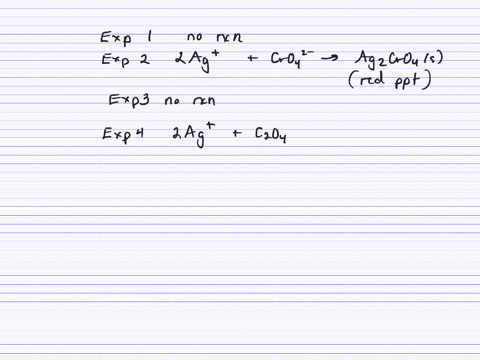 Exp 1 no rxn
Exp 2 2Ag⁺ + CrO₄²⁻ → Ag₂CrO₄(s)
(red ppt)
Exp3 no rxn
Exp4 2Ag⁺ + C₂O₄